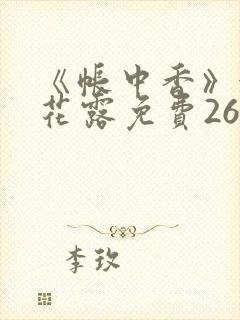 《帳中香》
花露免費26
李玖